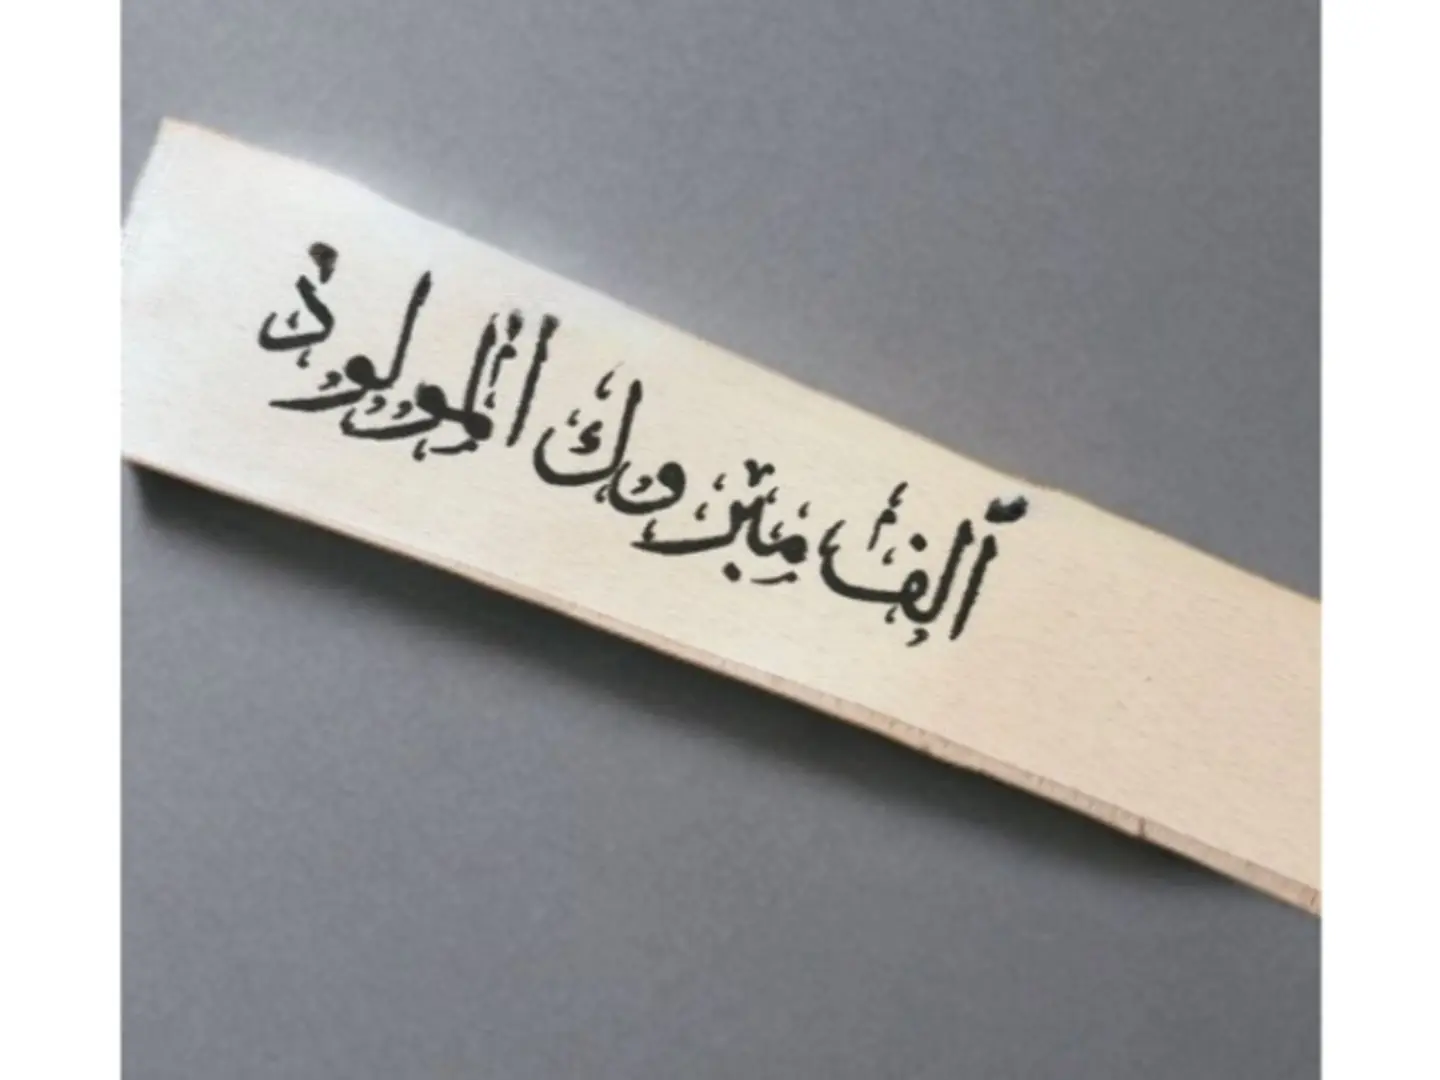 ألف مبروك المولود